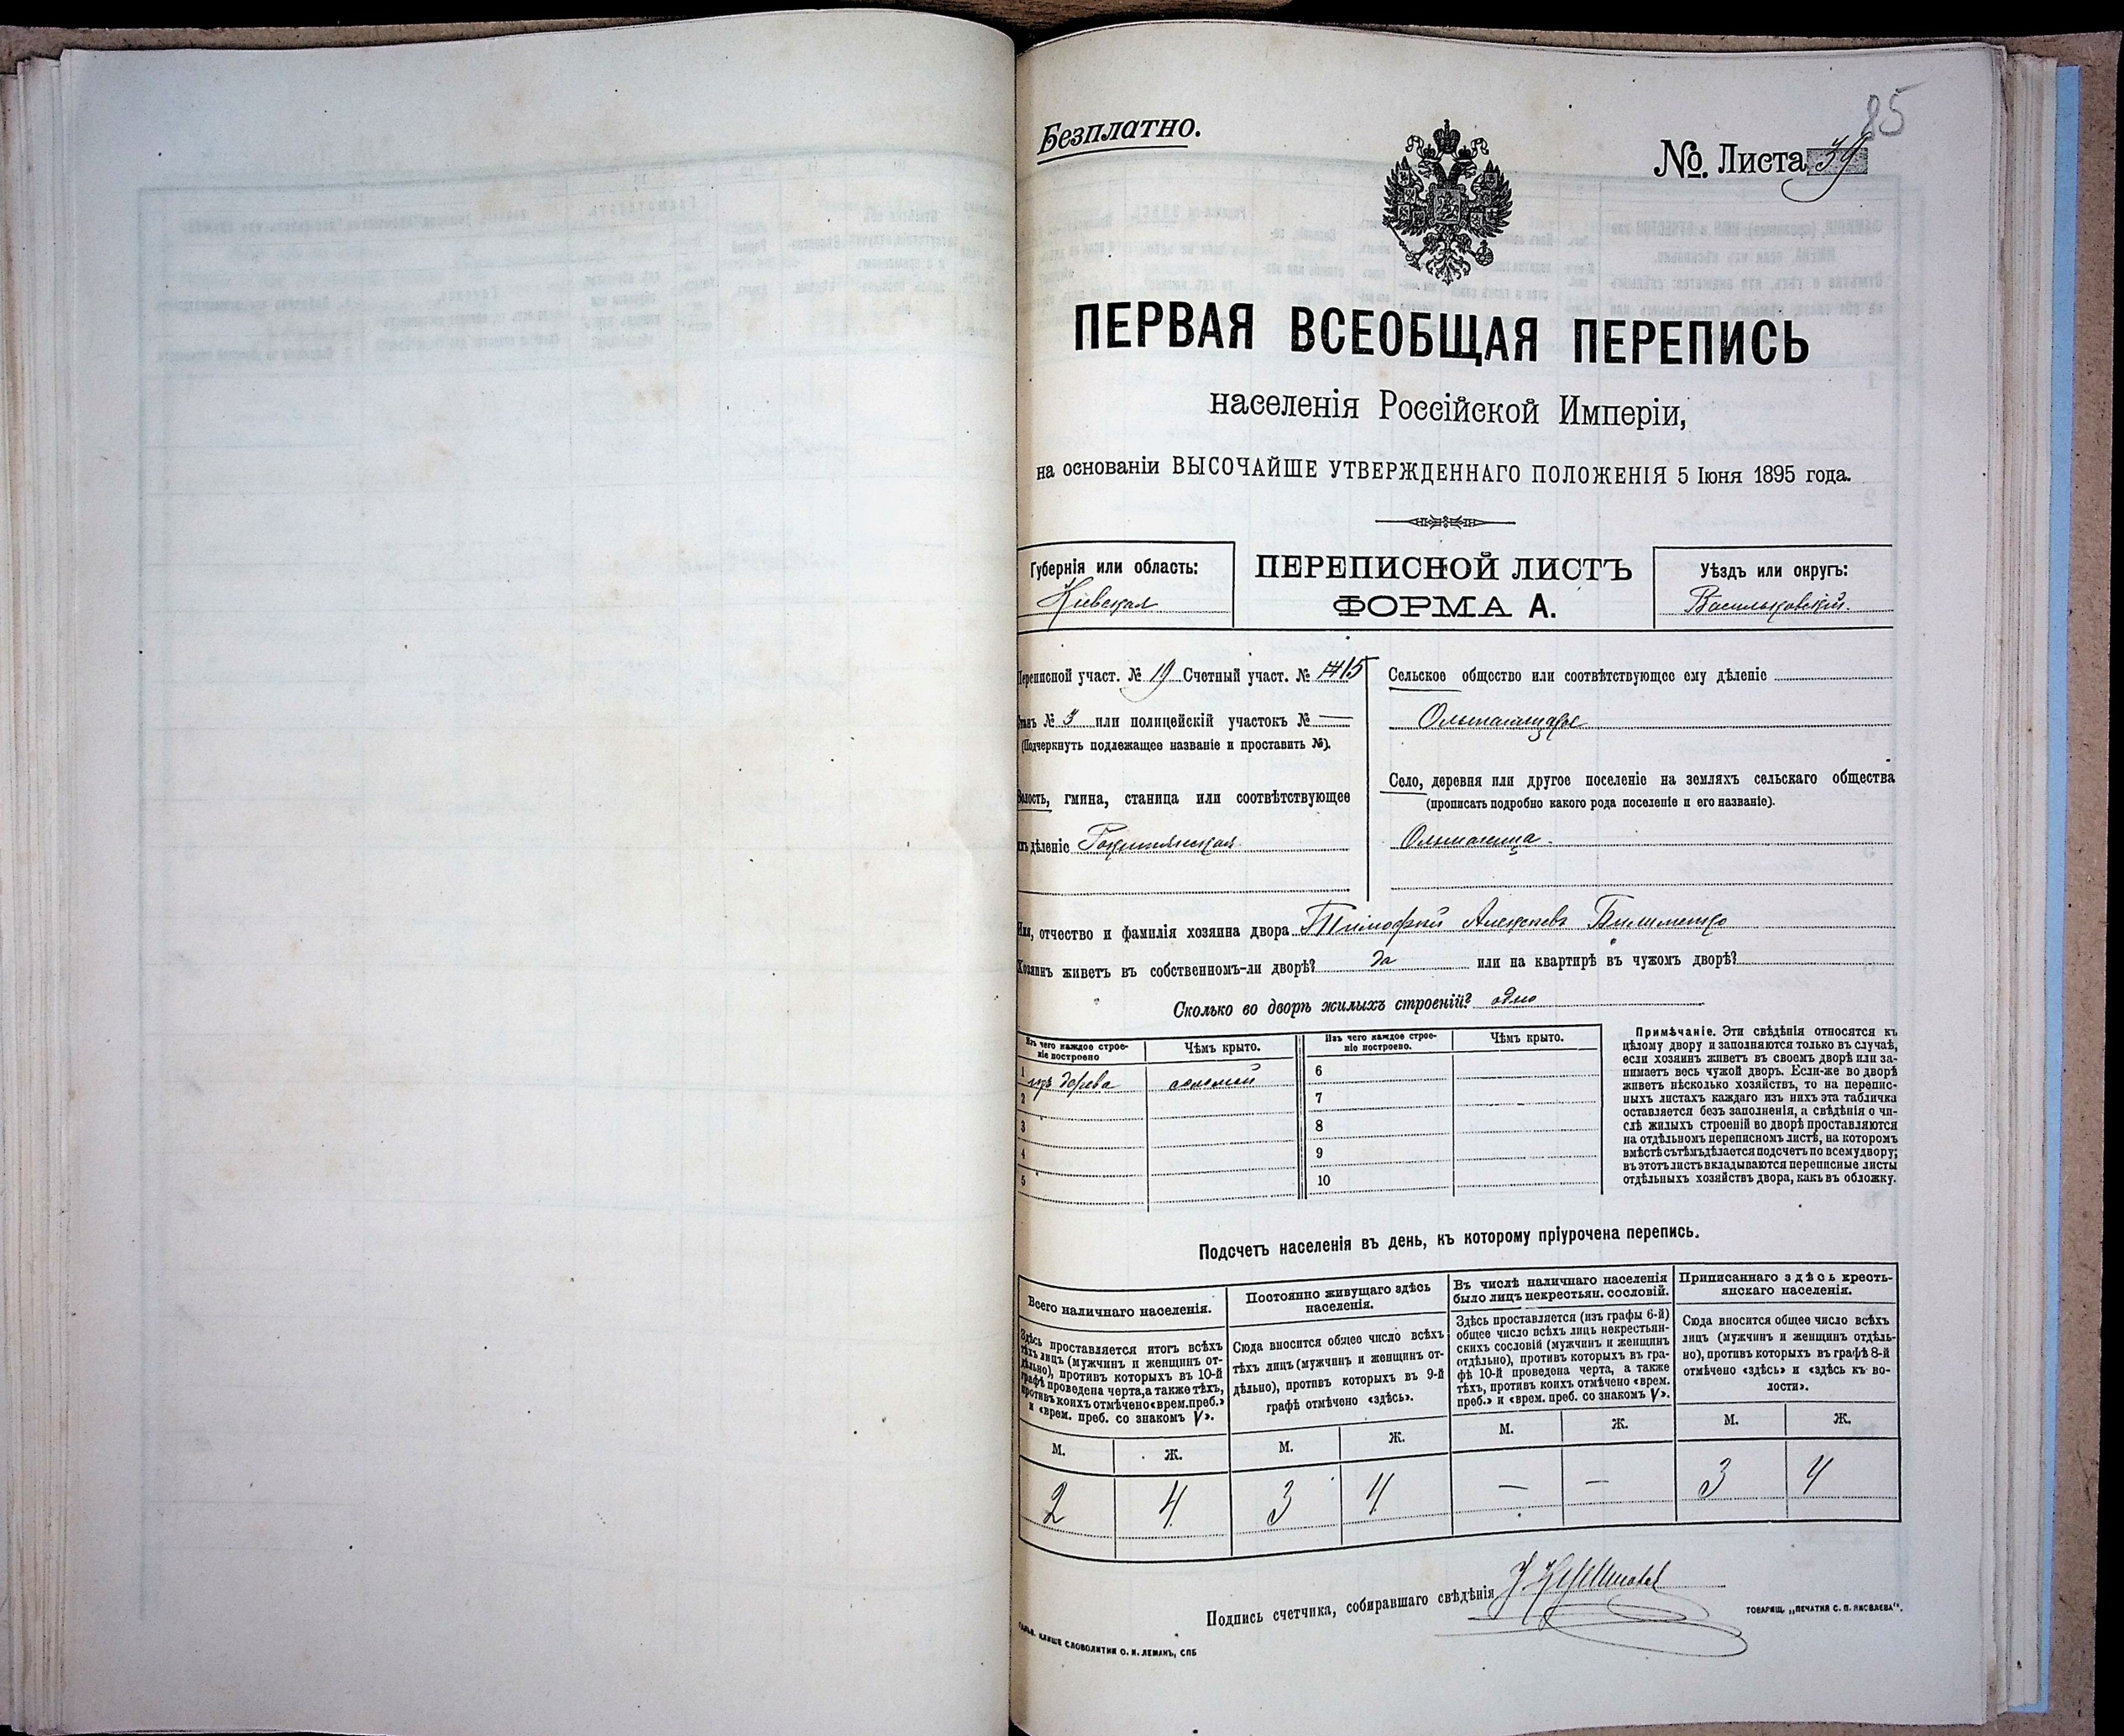 85
Безплатно.
№ Листа 39
ПЕРВАЯ ВСЕОБЩАЯ ПЕРЕПИСЬ
населенія Россійской Имперіи,
на основаніи ВЫСОЧАЙШЕ УТВЕРЖДЕННАГО ПОЛОЖЕНІЯ 5 Іюня 1895 года.
Губернія или область:
Кіевская
ПЕРЕПИСНОЙ ЛИСТЪ
ФОРМА А.
Уѣздъ или округъ:
Васильковскій.
Переписной участ. № 19 Счетный участ. № 15
Станъ № 3 или полицейскій участокъ № —
(Подчеркнуть подлежащее названіе и проставить №).
Волость, гмина, станица или соотвѣтствующее
имъ дѣленіе
Сельское общество или соотвѣтствующее ему дѣленіе
Село, деревня или другое поселеніе на земляхъ сельскаго общества
(прописать подробно какого рода поселеніе и его названіе).
Ольшаница
Имя, отчество и фамилія хозяина двора Тимофѣй Алексѣевъ
Хозяинъ живетъ въ собственномъ-ли дворѣ? да или на квартирѣ въ чужомъ дворѣ?
Сколько во дворѣ жилыхъ строеній? одно
Изъ чего каждое строе-
ніе построено
Чѣмъ крыто.
Изъ чего каждое строе-
ніе построено.
Чѣмъ крыто.
1 изъ дерева соломой 6
2 7
3 8
4 9
5 10
Примѣчаніе. Эти свѣдѣнія относятся къ
цѣлому двору и заполняются только въ случаѣ,
если хозяинъ живетъ въ своемъ дворѣ или за-
нимаетъ весь чужой дворъ. Если-же во дворѣ
живетъ нѣсколько хозяйствъ, то на перепис-
ныхъ листахъ каждаго изъ нихъ эта табличка
оставляется безъ заполненія, а свѣдѣнія о чи-
слѣ жилыхъ строеній во дворѣ проставляются
на отдѣльномъ переписномъ листѣ, на которомъ
вмѣстѣ съ тѣмъ дѣлается подсчетъ по всему двору;
въ этотъ листъ вкладываются переписные листы
отдѣльныхъ хозяйствъ двора, какъ въ обложку.
Подсчетъ населенія въ день, къ которому пріурочена перепись.
Всего наличнаго населенія.
Здѣсь проставляется итогъ всѣхъ
тѣхъ лицъ (мужчинъ и женщинъ от-
дѣльно), противъ которыхъ въ 10-й
графѣ проведена черта, а также тѣхъ,
противъ коихъ отмѣчено «врем. преб.»
и «врем. преб. со знакомъ V».
Постоянно живущаго здѣсь
населенія.
Сюда вносится общее число всѣхъ
тѣхъ лицъ (мужчинъ и женщинъ от-
дѣльно), противъ которыхъ въ 9-й
графѣ отмѣчено «здѣсь».
Въ числѣ наличнаго населенія
было лицъ некрестьян. сословій.
Здѣсь проставляется (изъ графы 6-й)
общее число всѣхъ лицъ некрестьян-
скихъ сословій (мужчинъ и женщинъ
отдѣльно), противъ которыхъ въ гра-
фѣ 10-й проведена черта, а также
тѣхъ, противъ коихъ отмѣчено «врем.
преб.» и «врем. преб. со знакомъ V».
Приписаннаго здѣсь кресть-
янскаго населенія.
Сюда вносится общее число всѣхъ
лицъ (мужчинъ и женщинъ отдѣль-
но), противъ которыхъ въ графѣ 8-й
отмѣчено «здѣсь» и «здѣсь къ во-
лости».
М. Ж. М. Ж. М. Ж. М. Ж.
2 4 3 4 — — 3 4
Подпись счетчика, собиравшаго свѣдѣнія
ГАЛЬВ. КЛИШЕ СЛОВОЛИТНИ О. И. ЛЕМАНЪ, СПБ
ТОВАРИЩ. „ПЕЧАТНЯ С. П. ЯКОВЛЕВА".